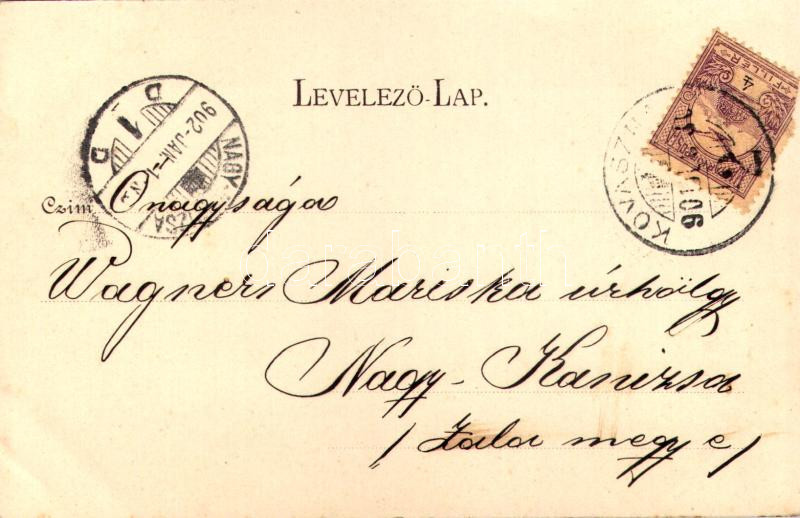 LEVELEZŐ-LAP.
4 FILLÉR
D 1 D
902 JAN
NAGY-
KOVÁSZNA
Czim Őnagysága
Wagner Mariska úrhölgy
Nagy-Kanizsa
/Zala megye/